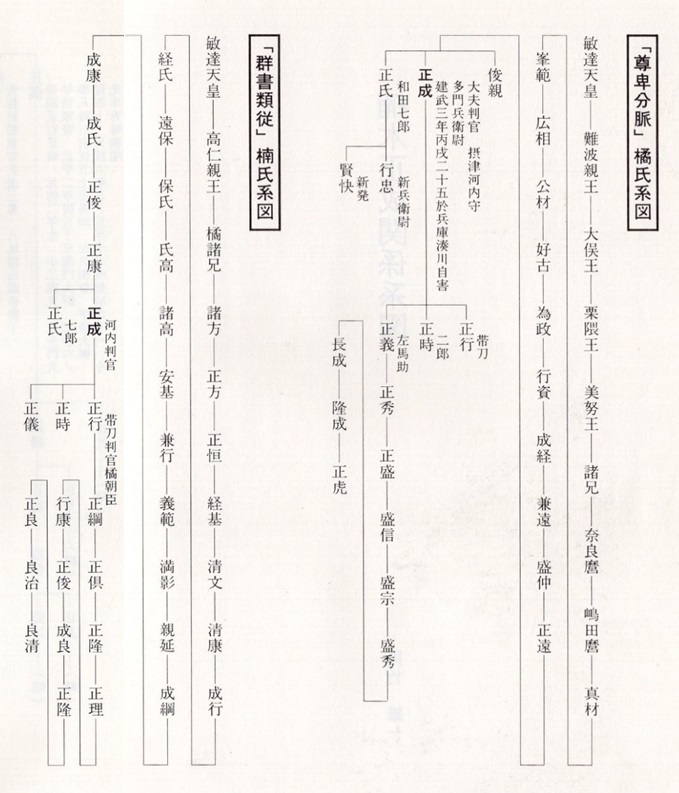 「尊卑分脈」橘氏系図
敏達天皇 難波親王 大俣王 栗隈王 美努王 諸兄 奈良麿 嶋田麿 真材
峯範 広相 公材 好古 為政 行資 成経 兼遠 盛仲 正遠
俊親
正成
大夫判官 摂津河内守
多門兵衛尉
建武三年丙戌二十五於兵庫湊川自害
正氏
和田七郎
行忠
新兵衛尉
賢快
新発
正行
帯刀
正時
二郎
正義
左馬助
正秀 正盛 盛信 盛宗 盛秀
長成 隆成 正虎
「群書類従」楠氏系図
敏達天皇 高仁親王 橘諸兄 諸方 正方 正恒 経基 清文 清康 成行
経氏 遠保 保氏 氏高 諸高 安基 兼行 義範 満影 親延 成綱
成康 成氏 正俊 正康
正成
河内判官
正氏
七郎
正行
帯刀判官橘朝臣
正綱 正倶 正隆 正理
正時
行康 正俊 成良 正隆
正儀
正良 良治 良清